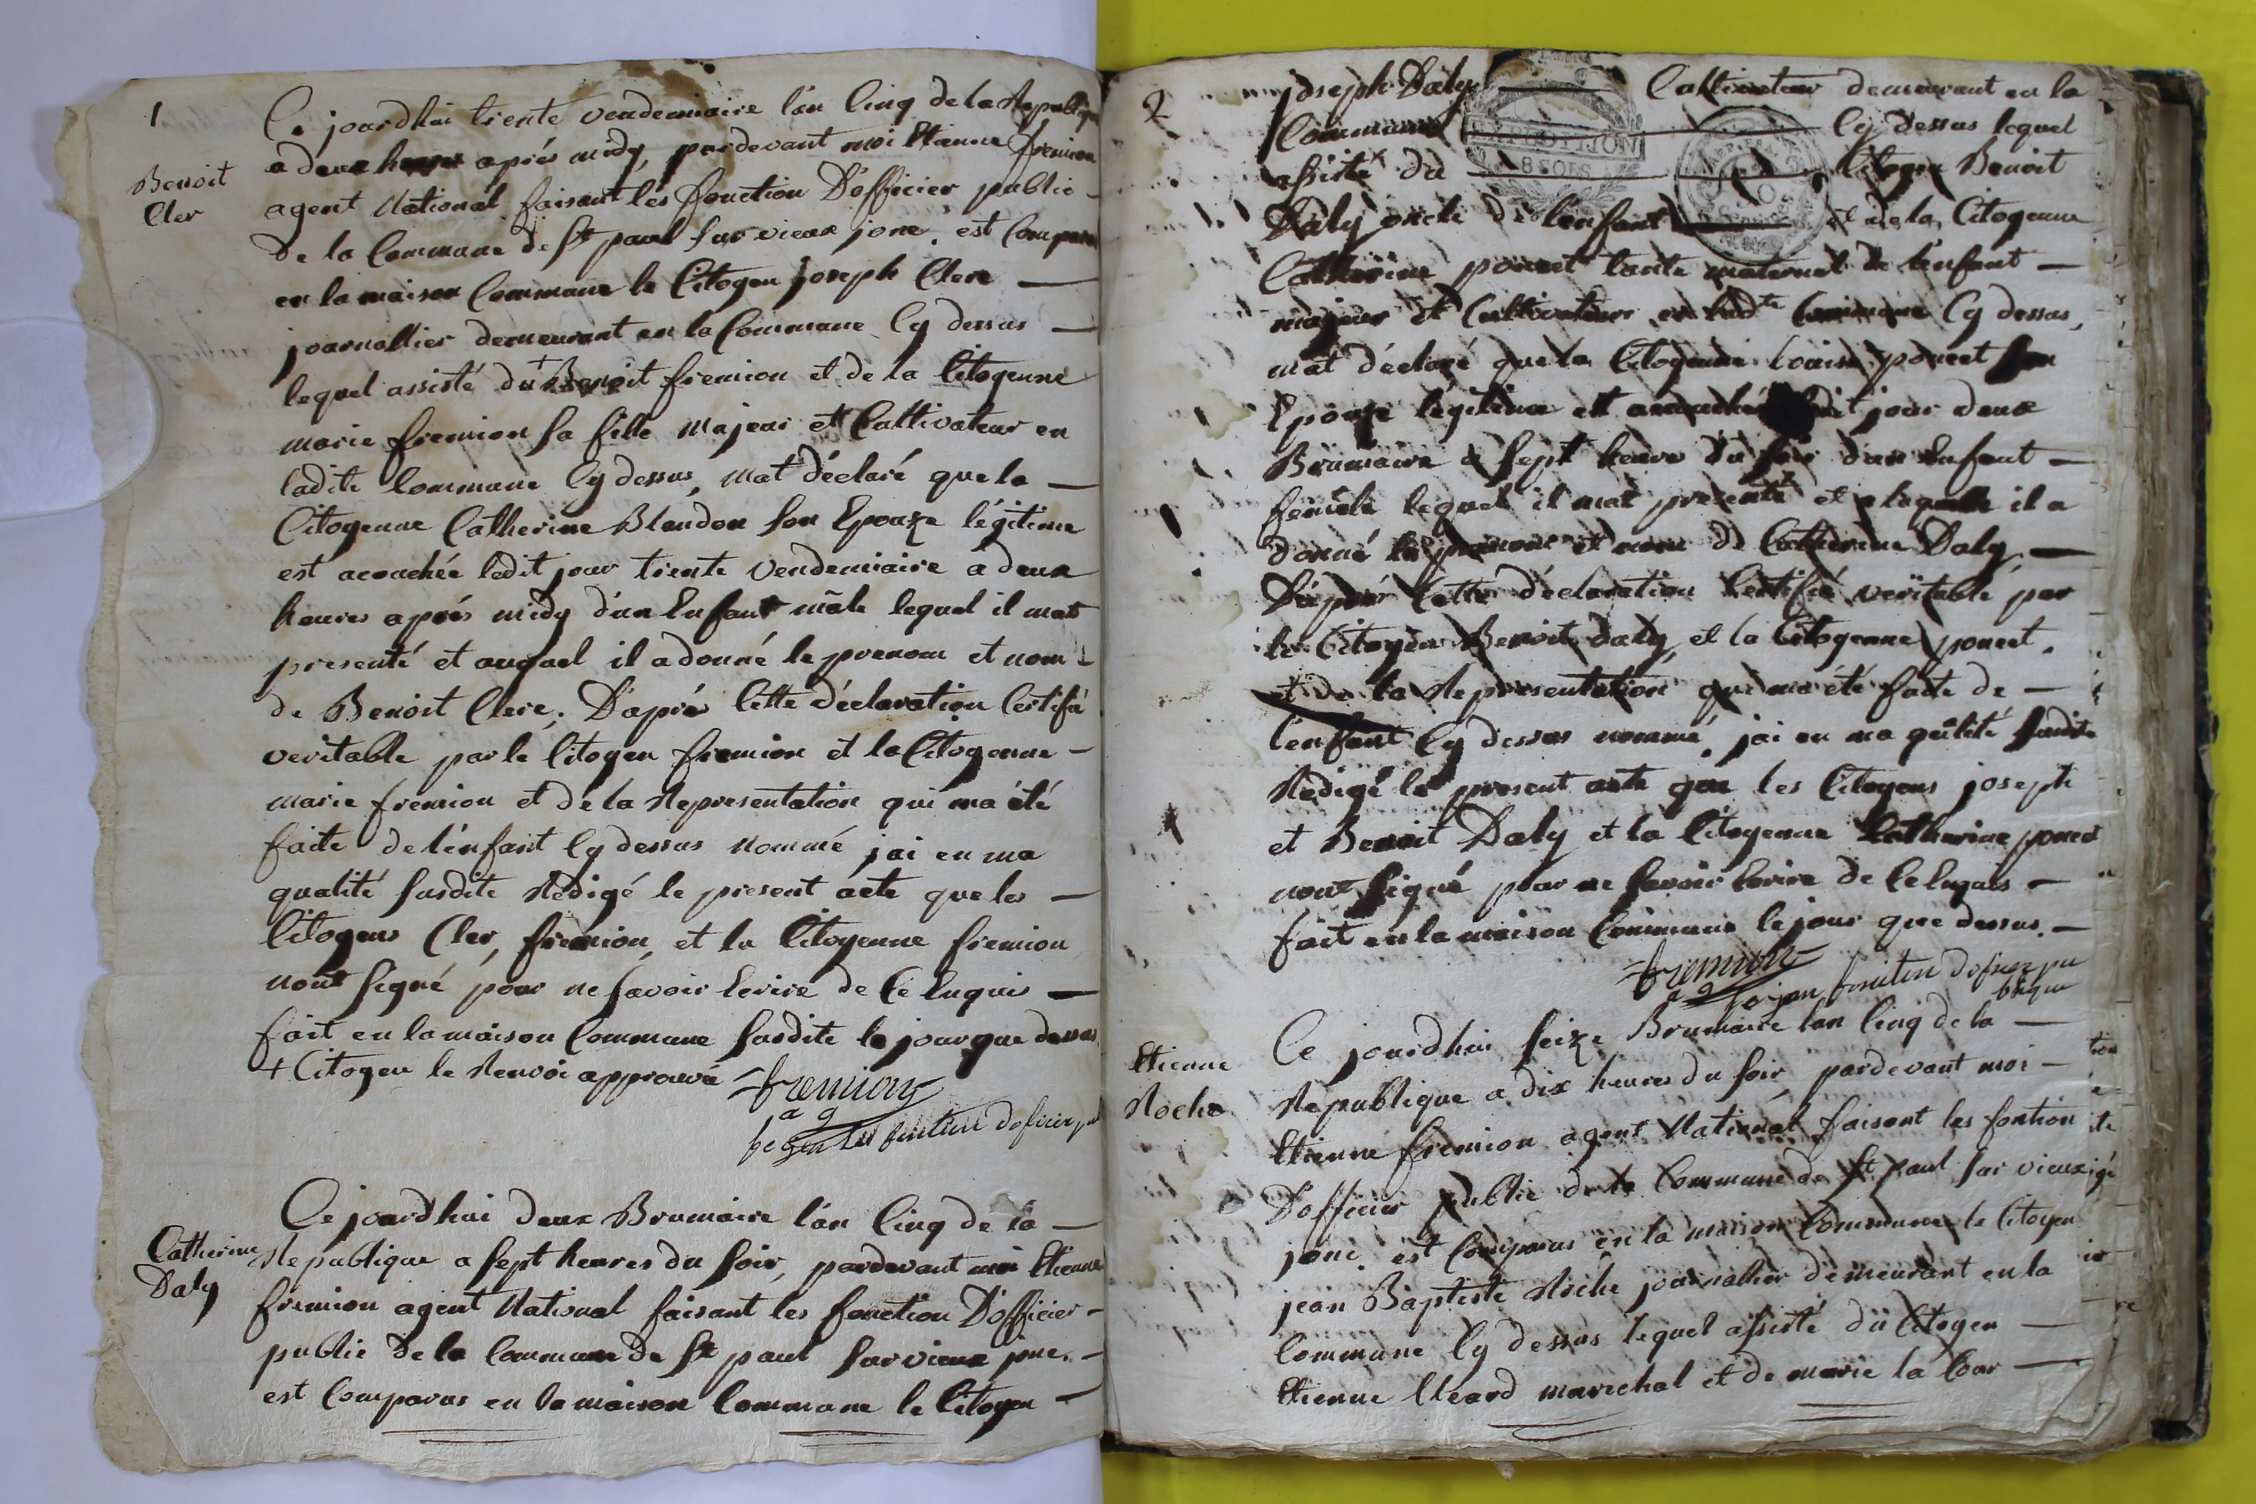 1
Benoit
Cler
Ce jourdhui trente vendemiaire l'an Cinq de la Republique
a deux heures aprés midy, pardevant moi Etienne fremion
agent National faisant les fonction D'officier public -
de la Commune de St paul sur vieux jonc. est Comparu
en la maison Commune le Citoyen joseph Clere —
journallier demeurant en la Commune Cy dessus —
lequel assisté du + Benoit fremion et de la Citoyenne
marie fremion sa fille majeur et Cultivateur en
ladite Commune Cy dessus, mat déclaré que la —
Citoyenne Catherine Blondon son Epouze légitime
est acouchée ledit jour trente Vendemiaire a deux
heures aprés midy d'un Enfant mâle lequel il mat
presenté et auquel il a donné le prenom et nom -
de Benoit Clere. D'aprés Cette déclaration Certifié
veritable par le Citoyen fremion et la Citoyenne -
marie fremion et de la Representation qui ma été
faite de l'énfant Cy dessus nommé jai en ma
qualité susdite Rédigé le present acte que les —
Citoyens Cler, fremion, et la Citoyenne fremion
nont signé pour ne savoir Ecrire de Ce Enquis —
fait en la maison Commune susdite le jour que dessus
+ Citoyen le Renvoi approuvé fremion
a g
Catherine
Daly
Ce jourdhui deux Brumaire l'an Cinq de la —
Republique a sept heures du soir, pardevant moi Etienne
fremion agent National faisant les fonction D'officier -
public de la Commune de St paul sur vieux jonc. -
est Comparus en la maison Commune le Citoyen —
2
joseph Daly Cultivateur demeurant en la
Commune Cy dessus lequel
assisté du Citoyen Benoit
Daly oncle de l'enfant et de la Citoyenne
Catherine poncet tante maternel de l'enfant —
majeur et Cultivateur en ladte Commune Cy dessus,
mat déclaré que la Citoyenne Louise poncet son
Epouze légitime est acouchée ledit jour deux
Brumaire a sept heure du soir d'un Enfant —
femele lequel il mat presenté et a laquelle il a
donné le prenom et nom de Catherine Daly —
D'aprés Cette déclaration Certifié veritable par
le Citoyen Benoit Daly et la Citoyenne poncet.
et de la Representation qui ma été faite de —
l'enfant Cy dessus nommé, jai en ma qualité susdite
Rédigé le present acte que les Citoyens joseph
et Benoit Daly et la Citoyenne Catherine poncet
nont signé pour ne savoir Ecrire de Ce Enquis —
fait en la maison Commune le jour que dessus. —
fremion
a g
Etienne
Roche
Ce jourdhui seize Brumaire lan Cinq de la —
Republique a dix heures du soir, pardevant moi —
Etienne fremion agent National faisant les fontion
D'officier public de la Commune de St paul sur vieux
jonc. est Comparus en la maison Commune le Citoyen
jean Baptiste Roche journalier demeurant en la
Commune Cy dessus lequel assisté du Citoyen —
Etienne marechal et de marie la Cour —